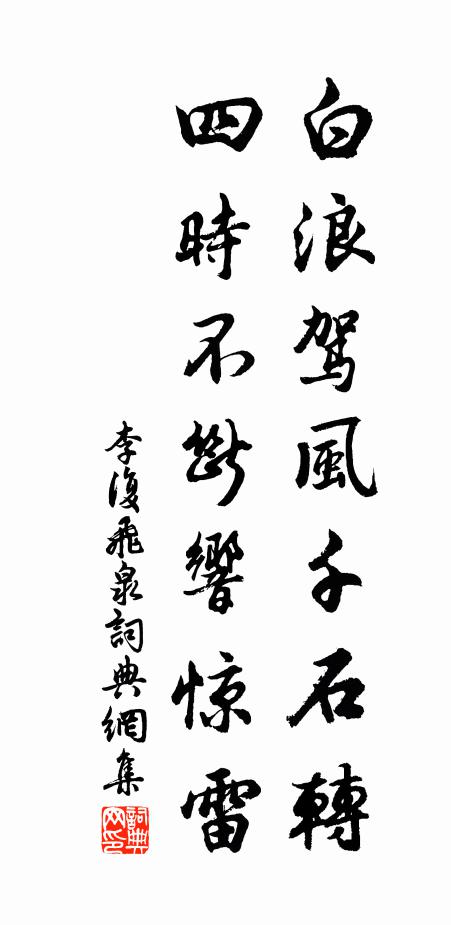 白浪驾風千石轉
四時不斷響惊雷
李復飛泉詞典網集
詞典网印